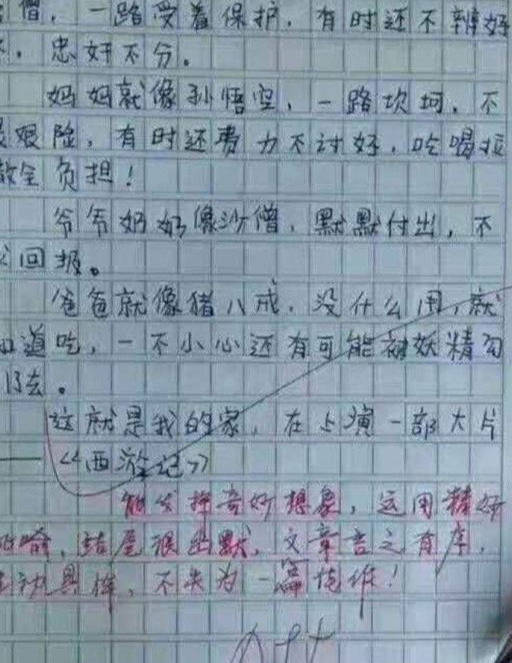 僧，一路受着保护，有时还不辨好
，忠奸不分。
妈妈就像孙悟空，一路坎坷，不
艰险，有时还费力不讨好，吃喝拉
全负担！
爷爷奶奶像沙僧，默默付出，不
回报。
爸爸就像猪八戒，没什么用，就
知道吃，一不小心还有可能被妖精勾
了去。
这就是我的家，在上演一部大片
——《西游记》
能发挥奇妙想象，运用精妙
比喻，结尾很幽默，文章言之有序，
生动具体，不失为一篇佳作！